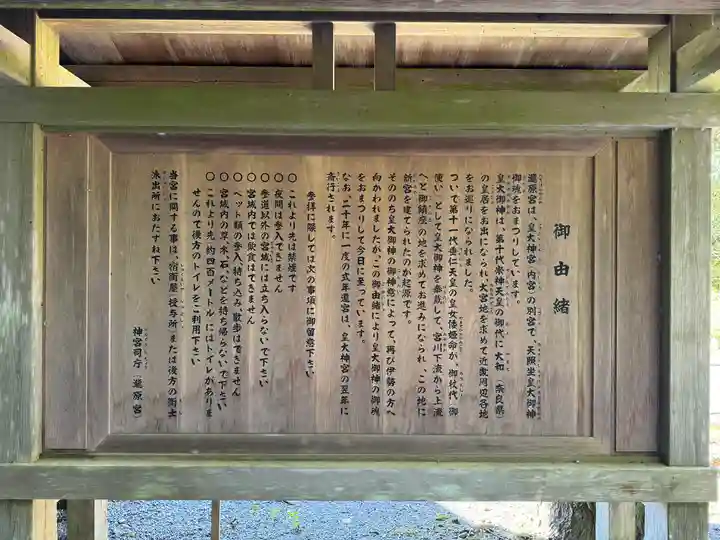 御由緒
瀧原宮は、皇大神宮(内宮)の別宮で、天照坐皇大御神
御魂をおまつりしています。
皇大御神は、第十代崇神天皇の御代に大和(奈良県)
の皇居をお出になられ、大宮地を求めて近畿周辺各地
をお巡りになられました。
ついで第十一代垂仁天皇の皇女倭姫命が、御杖代(御
使い)として皇大御神を奉戴して、宮川下流から上流
へと御鎮座の地を求めてお進みになられ、この地に
新宮を建てられたのが起源です。
そののち皇大御神の御神意によって、再び伊勢の方へ
向かわれましたが、この御由緒により皇大御神の御魂
をおまつりして今日に至っています。
なお、二十年に一度の式年遷宮は、皇大神宮の翌年に
斎行されます。
参拝に際しては次の事項に御留意下さい
〇これより先は禁煙です
〇夜間は参入できません
〇参道以外の宮域には立ち入らないで下さい
〇宮域内では飲食はできません
〇ペット類の参入・持ち込み・散歩はできません
〇宮域内の草木・石などを持ち帰らないで下さい
〇これより先、約四百メートルにはトイレがありま
せんので後方のトイレをご利用下さい
当宮に関する事は、宿衛屋(授与所)または後方の衛士
派出所におたずね下さい
神宮司庁(瀧原宮)